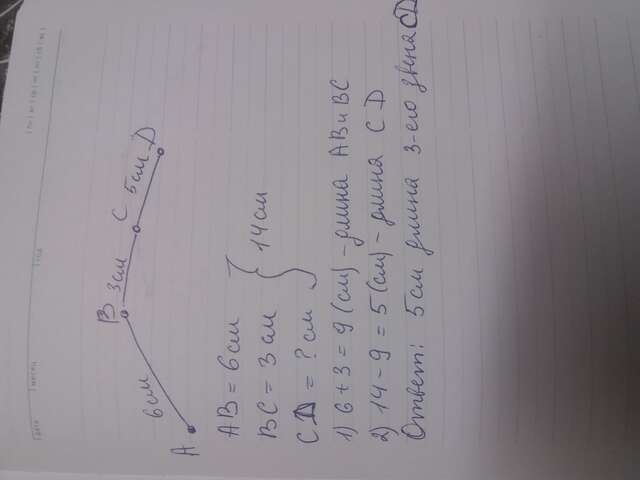 A
6 см
B
3 см
C
5 см
D
AB = 6 см
BC = 3 см
14 см
CD = ? см
1) 6 + 3 = 9 (см) - длина AB и BC
2) 14 - 9 = 5 (см) - длина CD
Ответ: 5 см длина 3-его звена CD